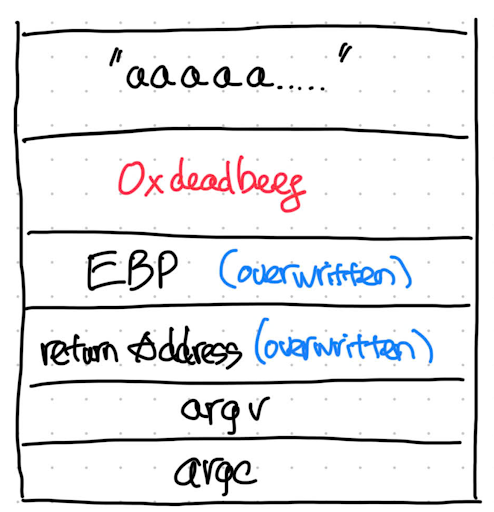 "aaaaa....."
0xdeadbeef
EBP (overwritten)
return Address (overwritten)
argv
argc